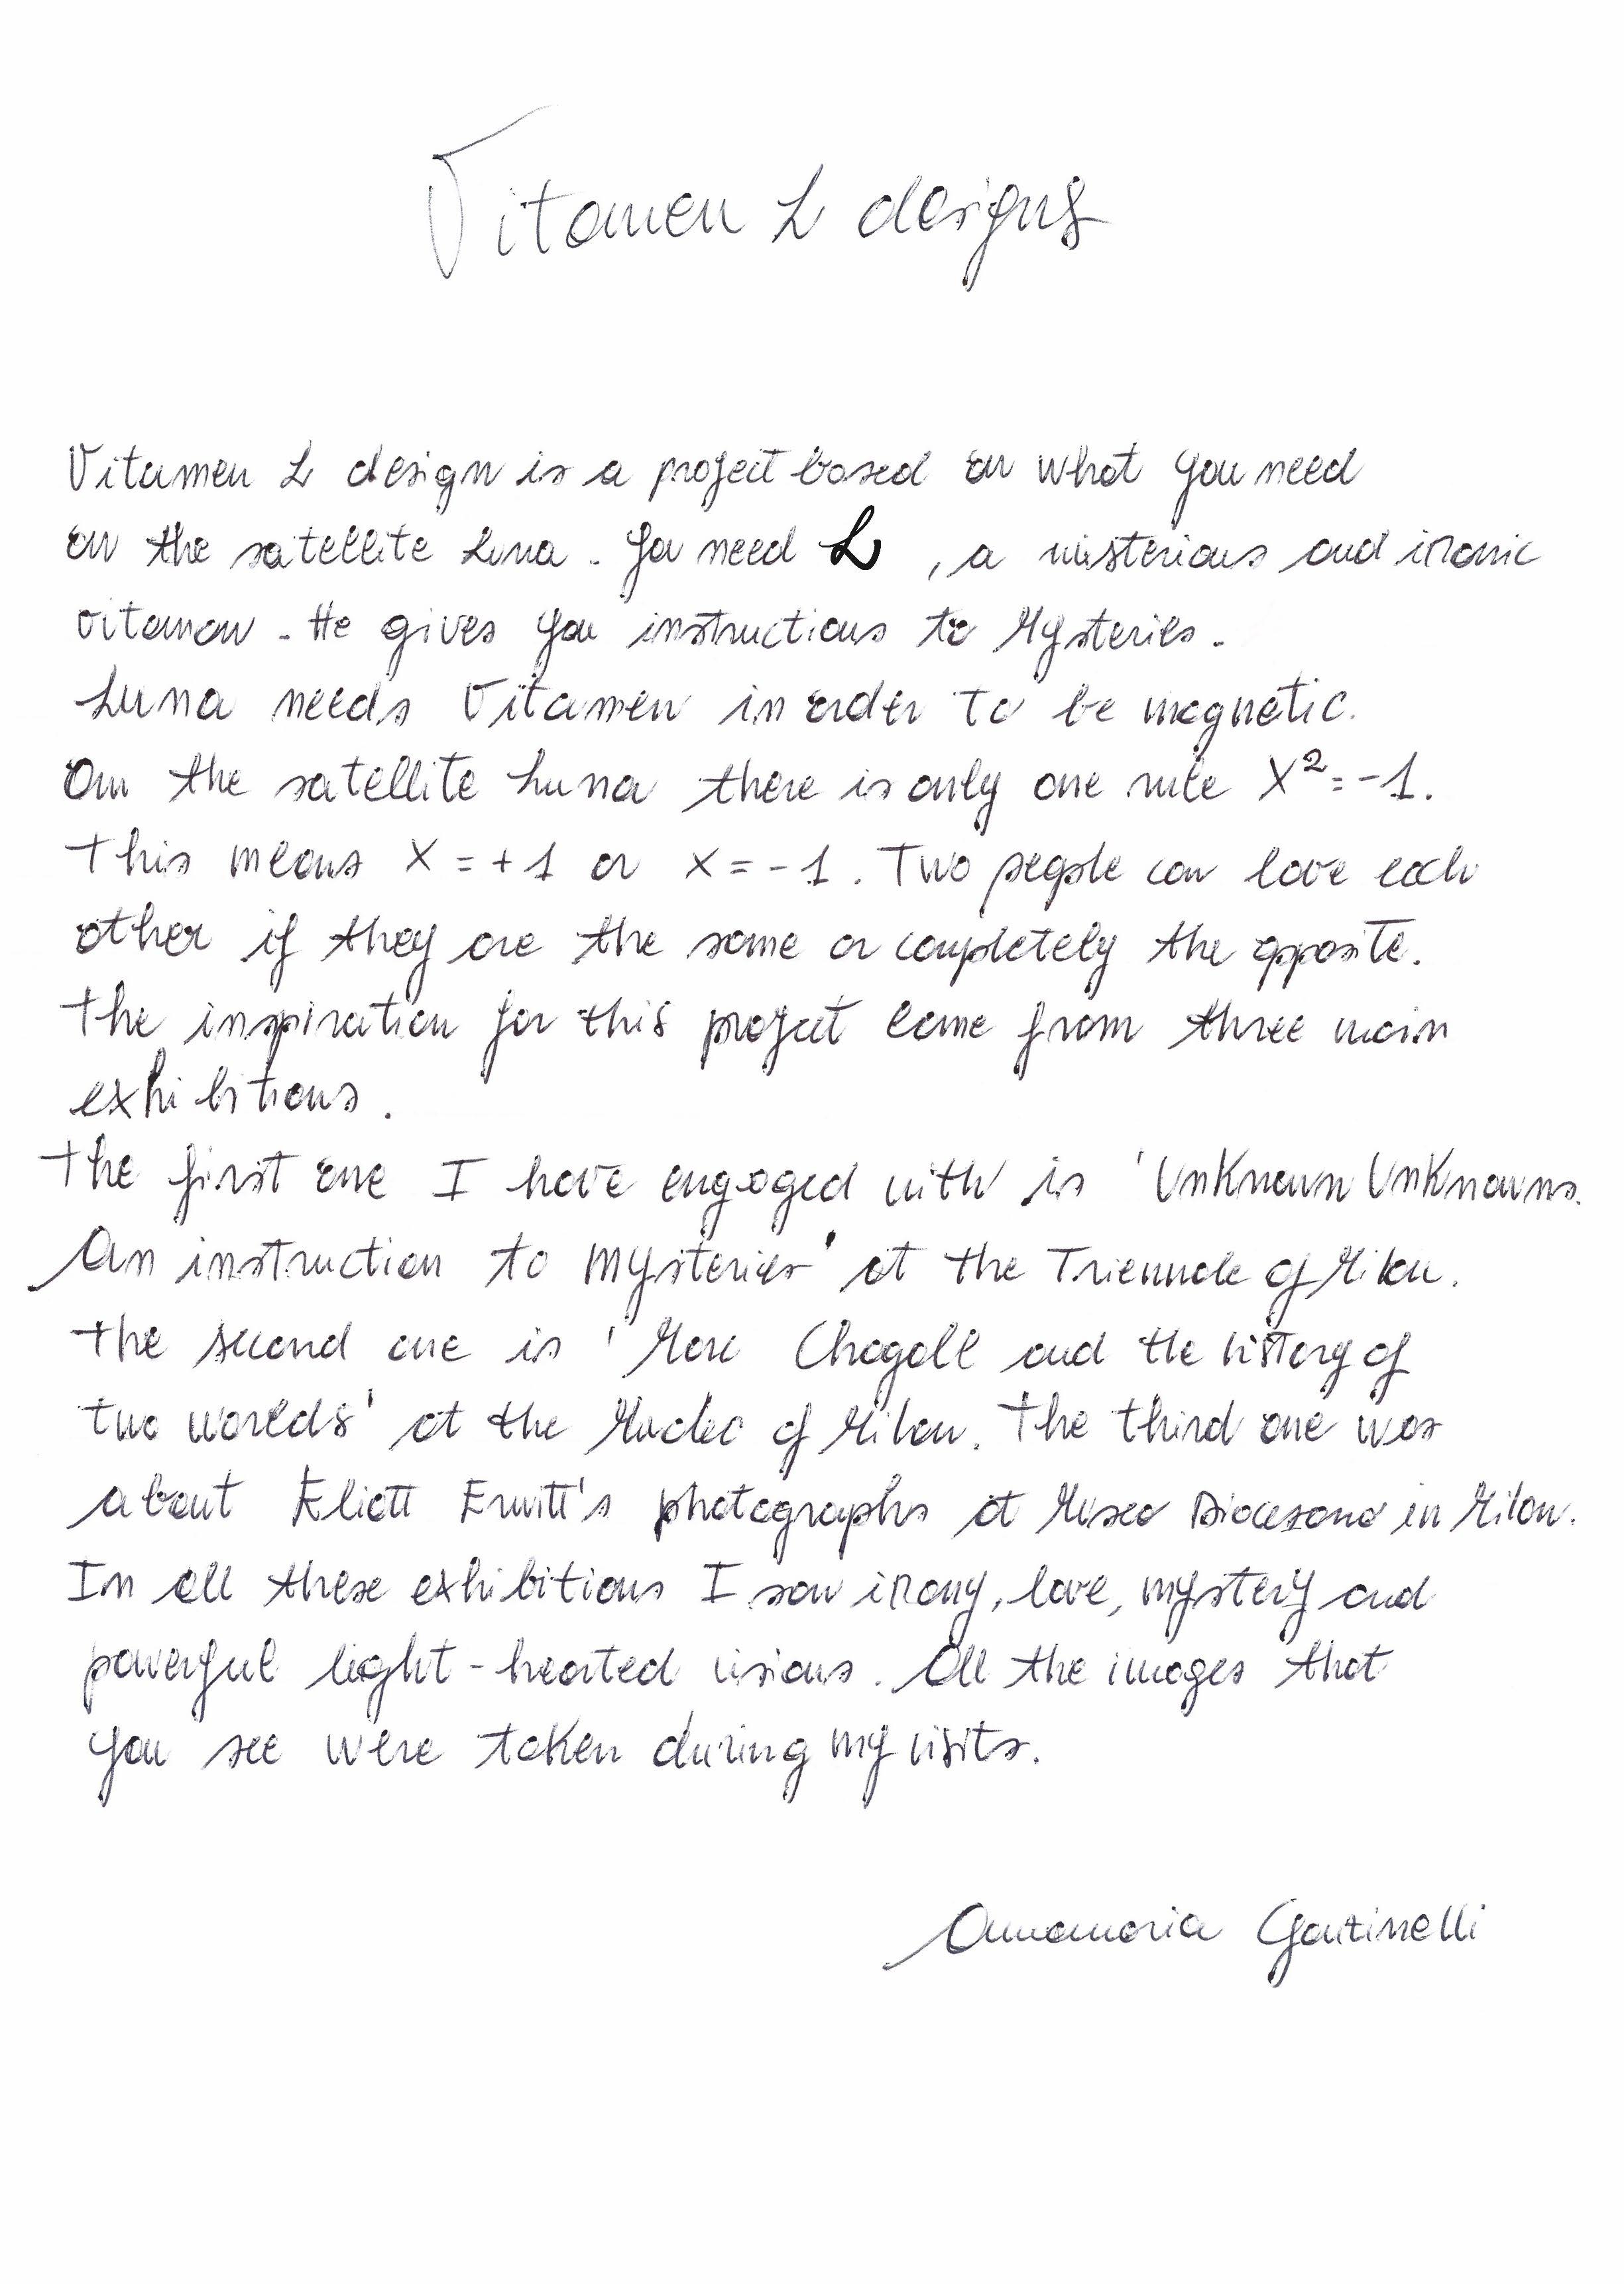 Vitamen L designs
Vitamen L design is a project based on what you need
on the satellite Luna. You need L, a misterious and ironic
vitamen. He gives you instructions to Mysteries.
Luna needs Vitamen in order to be magnetic.
On the satellite Luna there is only one rule X²=-1.
This means X = +1 or X = -1. Two people can love each
other if they are the same or completely the opposite.
The inspiration for this project come from three main
exhibitions.
The first one I have engaged with is 'Unknown Unknowns.
An instruction to Mysteries' at the Triennale of Milan.
The second one is 'Marc Chagall and the history of
two worlds' at the Mudec of Milan. The third one was
about Eliott Erwitt's photographs at Museo Diocesano in Milan.
In all these exhibitions I saw irony, love, mystery and
powerful light-hearted visions. All the images that
you see were taken during my visits.
Annamaria Garzinelli